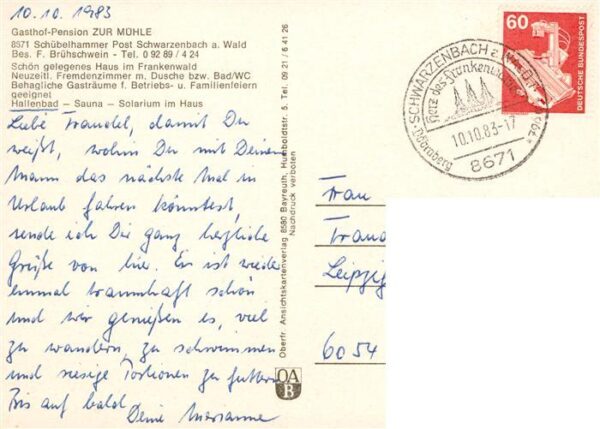 10.10.1983
Gasthof-Pension ZUR MÜHLE
8571 Schübelhammer Post Schwarzenbach a. Wald
Bes. F. Brühschwein - Tel. 0 92 89 / 4 24
Schön gelegenes Haus im Frankenwald
Neuzeitl. Fremdenzimmer m. Dusche bzw. Bad/WC
Behagliche Gasträume f. Betriebs- u. Familienfeiern
geeignet
Hallenbad — Sauna — Solarium im Haus
Liebe Traudel, damit Du
weißt, wohin Du mit Deinem
Mann das nächste Mal in
Urlaub fahren könntest,
sende ich Dir ganz herzliche
Grüße von hier. Es ist wieder
einmal traumhaft schön
und wir genießen es, viel
zu wandern, zu schwimmen
und riesige Portionen zu futtern.
Bis auf bald
Deine Marianne
Oberfr. Ansichtskartenverlag 8580 Bayreuth, Humboldtstr. 5, Tel. 09 21 / 6 41 26
Nachdruck verboten
OA
B
SCHWARZENBACH a. WALD
Herz des Frankenwaldes
Döbraberg
10.10.83-17
8671
60
DEUTSCHE BUNDESPOST
Frau
Traud
Leipzig
6054